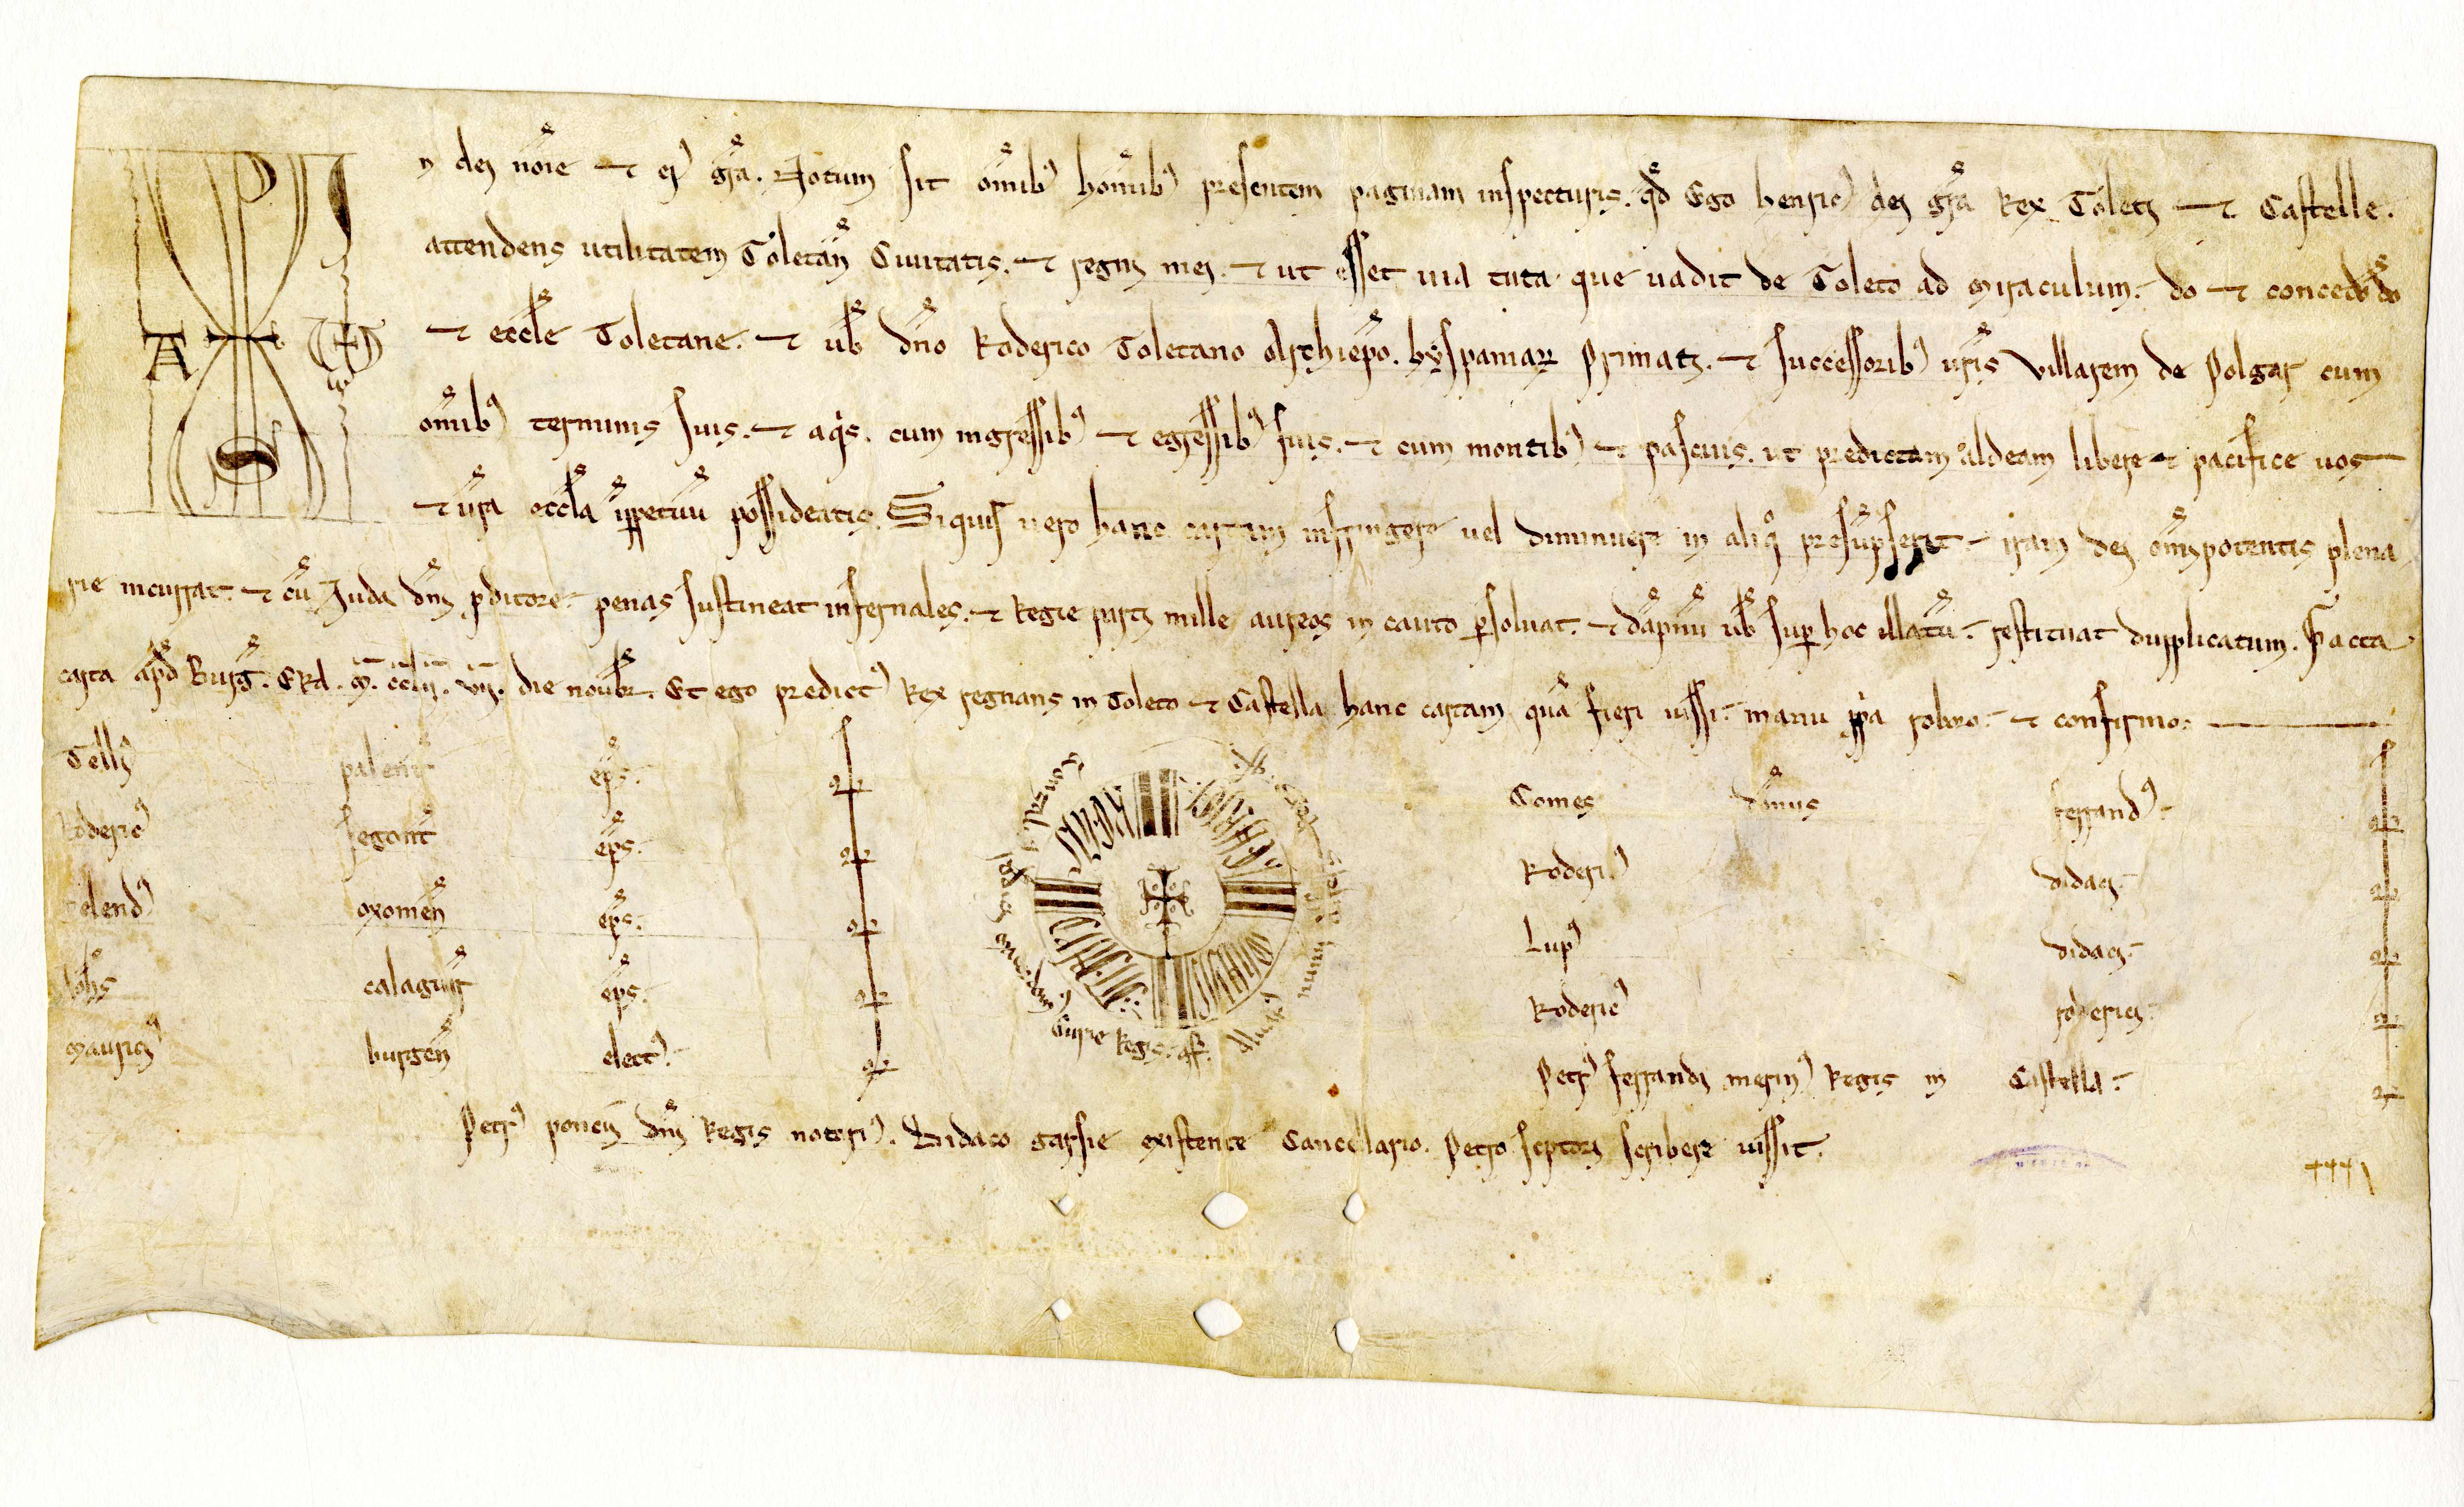 n dei nõie et ei᷒ gr̃a. Notum sit om̃ib᷒ hom̃ib᷒ presentem paginam inspecturis. qd̃ Ego henric᷒ dei gr̃a Rex Toleti et Castelle.
attendens utilitatem Toletañ Ciuitatis. et regni mei. et ut esset uia tuta que uadit de Toleto ad Miraculum. do et concedo do
et eccl̃e Toletane. et ub̃ dño Roderico Toletano Archiep̃o. hyspaniaꝝ Primati. et successorib᷒ ur̃is villarem de Polgar cum
om̃ib᷒ terminis suis. et aqis. cum ingressib᷒ et egressib᷒ suis. et cum montib᷒ et pascuis. ut predictam aldeam libere et pacifice uos
et ur̃a eccl̃a ippetuũ possideatis. Siquis uero hanc cartam infringere uel diminuere in aliqo presũpserit. iram dei om̃ipotentis plena
rie incurrat. et cũ Iuda dñi ꝓditore. penas sustineat infernales. et Regie parti mille aureos in cauto ꝑsoluat. et dãpnũ uб̃ suꝑ hoc illatũ. restituat dupplicatum. Facta
carta apd̃ Burg̃. ERA. M̃. cc̃lii. vii. die noub̃r. Et ego predict᷒ Rex regnans in Toleto et Castella hanc cartam quã fieri iussi. manu ꝓpa roboro. et confirmo.
Tell᷒ palent̃ ep̃s. 9f
Roderic᷒ segont̃ ep̃s. 9f
Melend᷒ oxomeñ ep̃s. 9f
Ioh̃s calagur̃r ep̃s. 9f
Maurici᷒ burgeñ elect᷒. 9f
SIGNUM HENRICI REGIS CASTELLE
Curie Regis. 9f.
Comes dom̃nus ferrand᷒. 9f
Roderi᷒ didaci. 9f
Lup᷒ didaci. 9f
Roderic᷒ roderici. 9f
Petr᷒ ferrandi merin᷒ Regis in Castella. 9f
Petr᷒ poncii dñi Regis notari᷒. Didaco garsie existente Cancellario. Petro sc̃ptori scribere iussit.